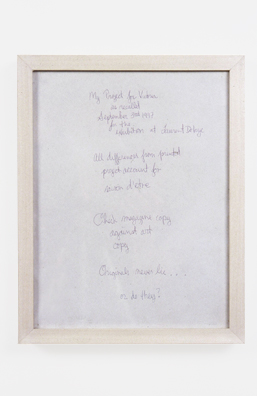 My Project for
as revealed
September
for the
exhibition at
All differences from printed
project account for
raison d'être
magazine copy
against art
copy
Originals never lie . . .
or do they?